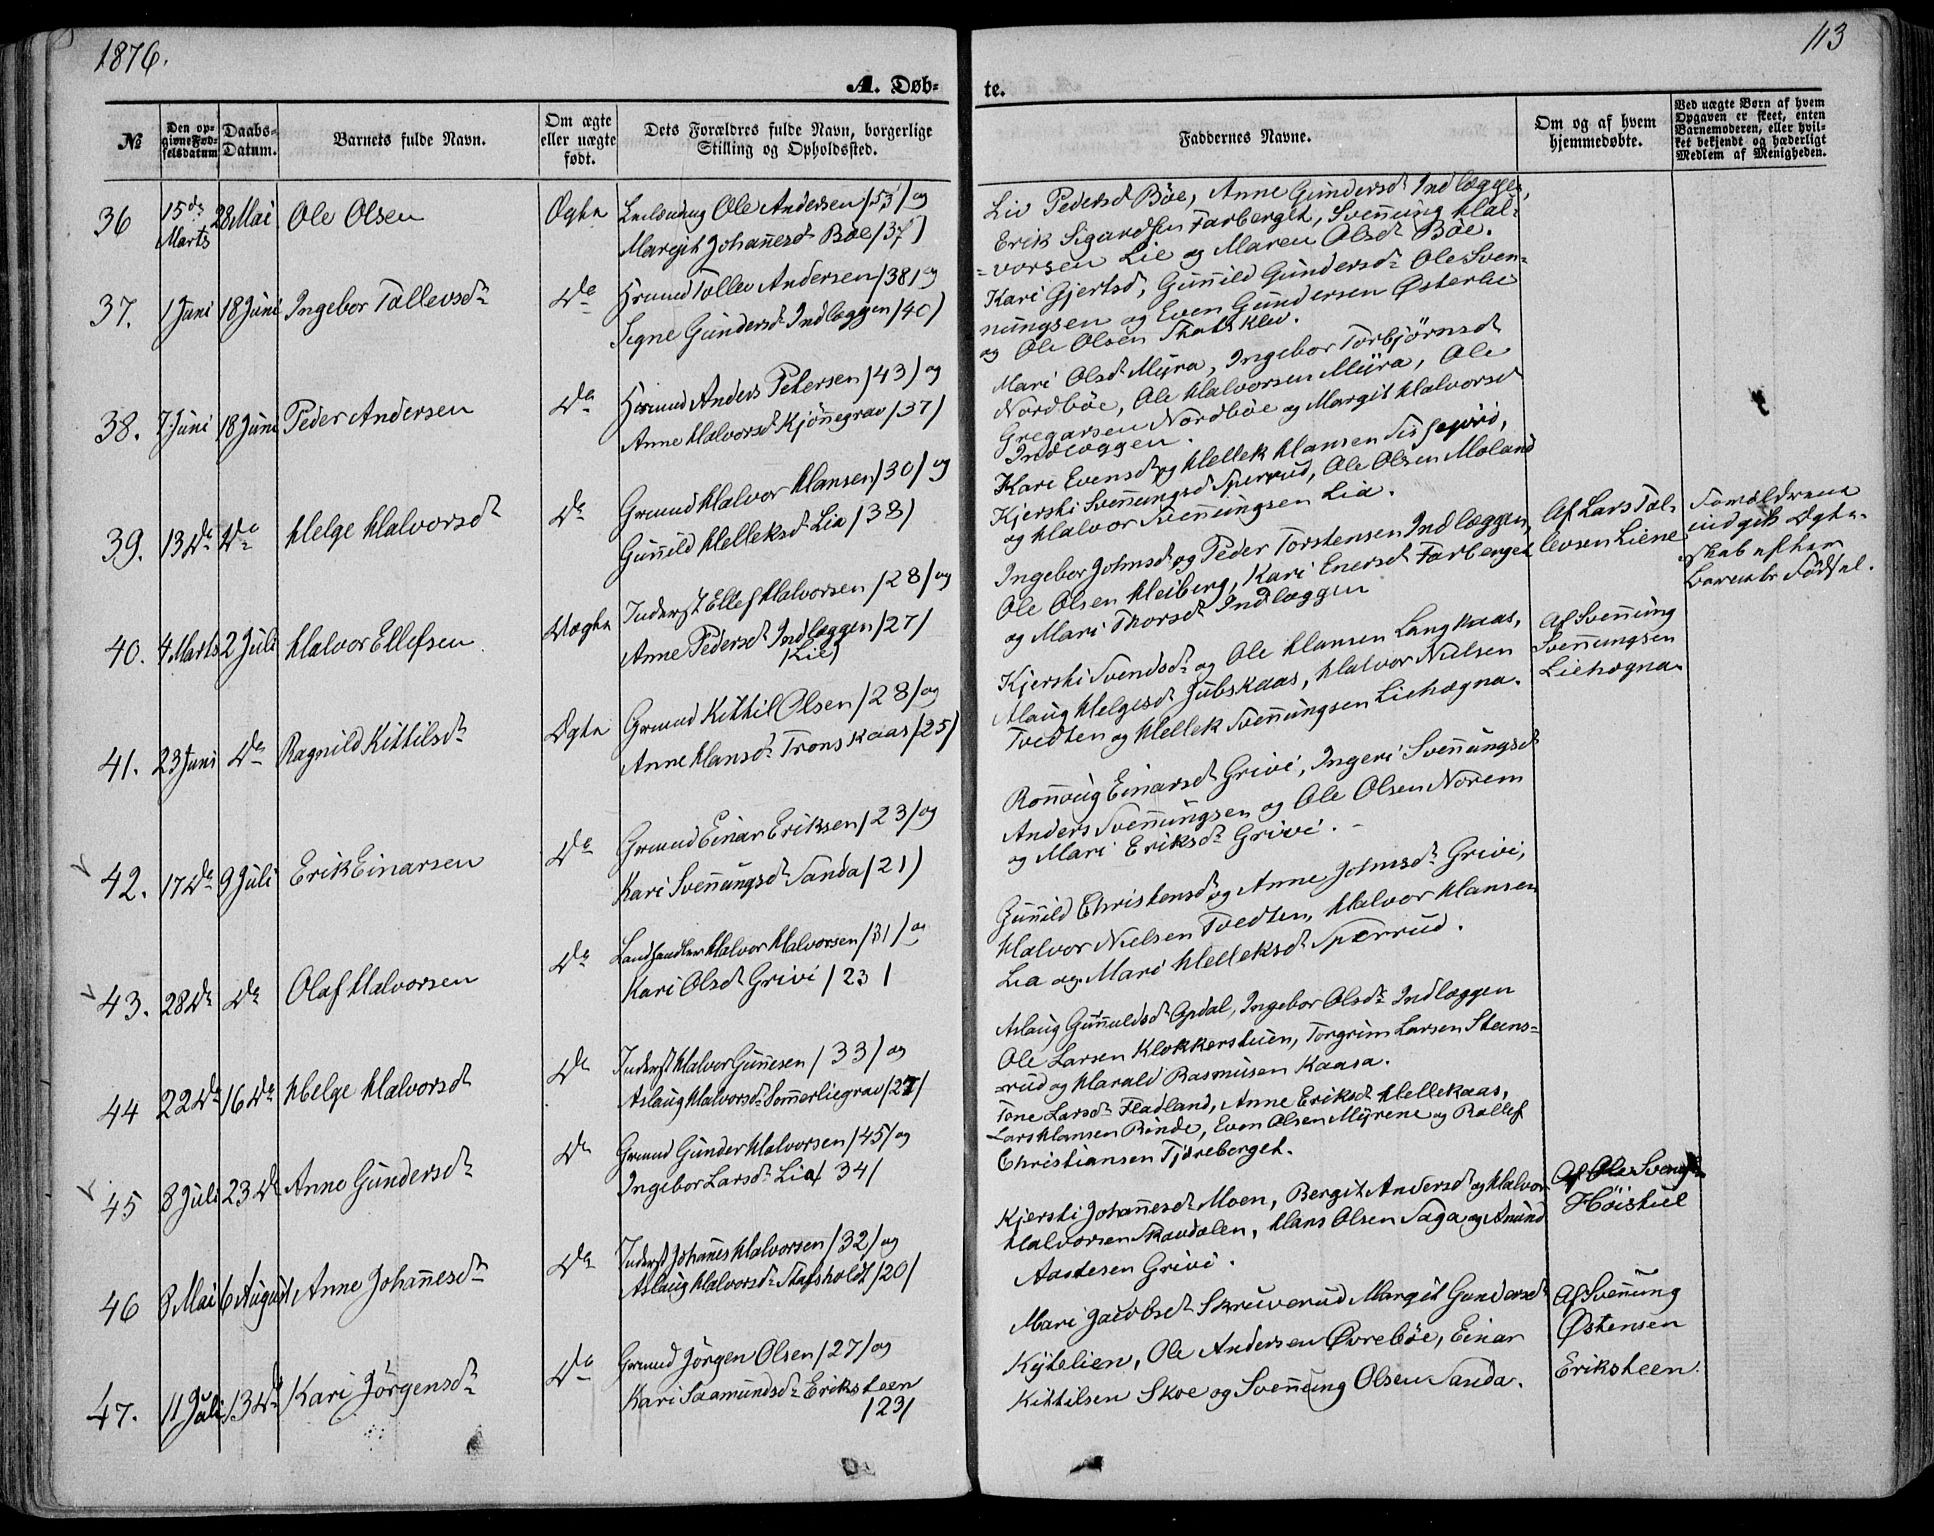 1876.
113
A. Døb-
te.
№
Den op-
givne Fød-
selsdatum
Daabs-
Datum.
Barnets fulde Navn.
Om ægte
eller uægte
født.
Dets Forældres fulde Navn, borgerlige
Stilling og Opholdssted.
Faddernes Navne.
Om og af hvem
hjemmedøbte.
Ved uægte Børn af hvem
Opgaven er skeet, enten
Barnemoderen, eller hvil-
ket bekjendt og hæderligt
Medlem af Menigheden.
36
15de Marts
28 Mai
Ole Olsen
Ægte
Ole Andersen /53/ og
Margit Johannesd. Bøe /37/
Liv Pedersd. Bøe, Anne Gundersd. Indlæggen,
Erik Sigurdsen Farberget, Svennung Hal-
vorsen Lie og Maren Olsd. Bøe.
37.
1 Juni
18 Juni
Ingebor Tollevsd.
Do
Tollev Andersen /38/ og
Signe Gundersd. Indlæggen /40/
Kari Gjertsd, Gunnild Gundersd. Ole Sven-
nungsen og Even Gundersen Østerlie
og Ole Olsen
38.
7 Juni
18 Juni
Peder Andersen
Do
Anders Petersen /43/ og
Anne Halvorsd. Kjønnegrav /37/
Mari Olsd. Myra, Ingebor Torbjørnsd
Nordbøe, Ole Halvorsen Myra, Ole
Gregarsen Nordbøe og Margit Halvorsd
Indlæggen.
39.
13 Do
Do
Helge Halvorsd
Do
Grmnd Halvor Hansen /30/ og
Gunnild Helleksd. Lia /38/
Kari Evensd. og Hellek Hansen
Kjersti Svennungsd. Spærrud, Ole Olsen Moland
og Halvor Svennungsen Lia.
40.
4 Marts
2 Juli
Halvor Ellefsen
Uægte
Inderst Ellef Halvorsen /28/ og
Anne Pedersd. Indlæggen /27/
(Lie)
Ingebor Johnsd. og Peder Torstensen Indlæggen,
Ole Olsen Heiberg, Kari Enersd. Farberget
og Mari Thorsd. Indlæggen
Af Lars Tol-
levsen Liene
Forældrene
indgik Ægte-
skab efter
Barnets Fødsel.
41.
23 Juni
Do
Ragnild Kittilsd.
Ægte
Grmnd Kittil Olsen /28/ og
Anne Hansd. Tronskaas /25/
Kjersti Svendsd. og Ole Hansen Langkaas,
Aslaug Helgesd. Jubskaas, Halvor Nielsen
Tvedten og Hellek Svennungsen Liehogna.
Af Svennung
Svennungsen
Liehogna.
42.
17 Do
9 Juli
Erik Einarsen
Do
Grmnd Einar Eriksen /23/ og
Kari Svennungsd. Sanda /21/
Ronnaug Einarsd. Grivi, Ingeri Svennungsd
Anders Svennungsen og Ole Olsen Norem
og Mari Eriksd. Grivi.
43.
28 Do
Do
Olaf Halvorsen
Do
Landhandler Halvor Halvorsen /31/ og
Kari Olsd. Grivi /23/
Gunnild Christensd. og Anne Johnsd. Grivi,
Halvor Nielsen Tvedten, Halvor Hansen
Lia og Mari Helleksd. Spærrud.
44
22 Do
16 Do
Helge Halvorsd
Do
Inderst Halvor Gunnesen /33/ og
Aslaug Halvorsd. Sommerliegrav /27/
Aslaug Gunnuldsd. Opdal, Ingebor Olsd. Indlæggen
Ole Larsen Klokkersteien, Torgrim Larsen Steens-
rud og Harald Rasmusen Kaasa.
45
8 Juli
23 Do
Anne Gundersd.
Do
Grmnd Gunder Halvorsen /45/ og
Ingebor Larsd. Lia /34/
Tone Larsd. Fladland, Anne Eriksd. Hellekaas,
Lars Hansen Rinde, Even Olsen Myrene og Rollef
Christiansen Tjøreberget.
46
8 Mai
6 August
Anne Johannesd.
Do
Inderst Johannes Halvorsen /32/ og
Aslaug Halvorsd. Stafsholdt /20/
Kjersti Johannesd. Moen, Bergit Andersd. og Halvor
Halvorsen Skavdalen, Hans Olsen Saga og Anund
Aastesen Grivi.
Af Ole
Høistuel
47.
11 Juli
13 Do
Kari Jörgensd.
Do
Grmnd Jörgen Olsen /27/ og
Kari Saamundsd. Eriksteen
/23/
Mari Jacobsd. Skruverud Margit Gundersd.
Kytelien, Ole Andersen Øvrebøe, Einar
Kittilsen Skoe og Svennung Olsen Sanda.
Af Svennung
Østensen
Eriksteen.